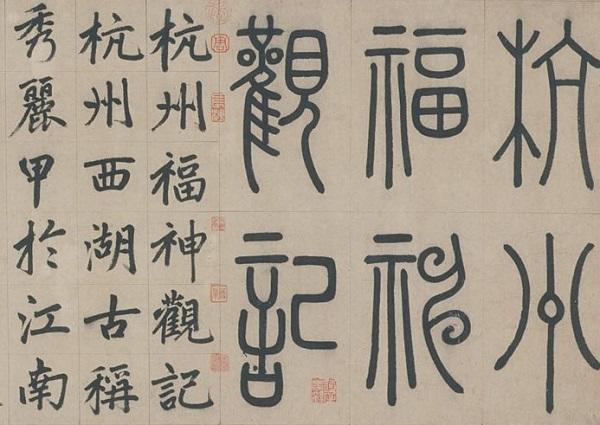 杭州
福神
觀記
杭州福神觀記
杭州西湖古稱
秀麗甲於江南